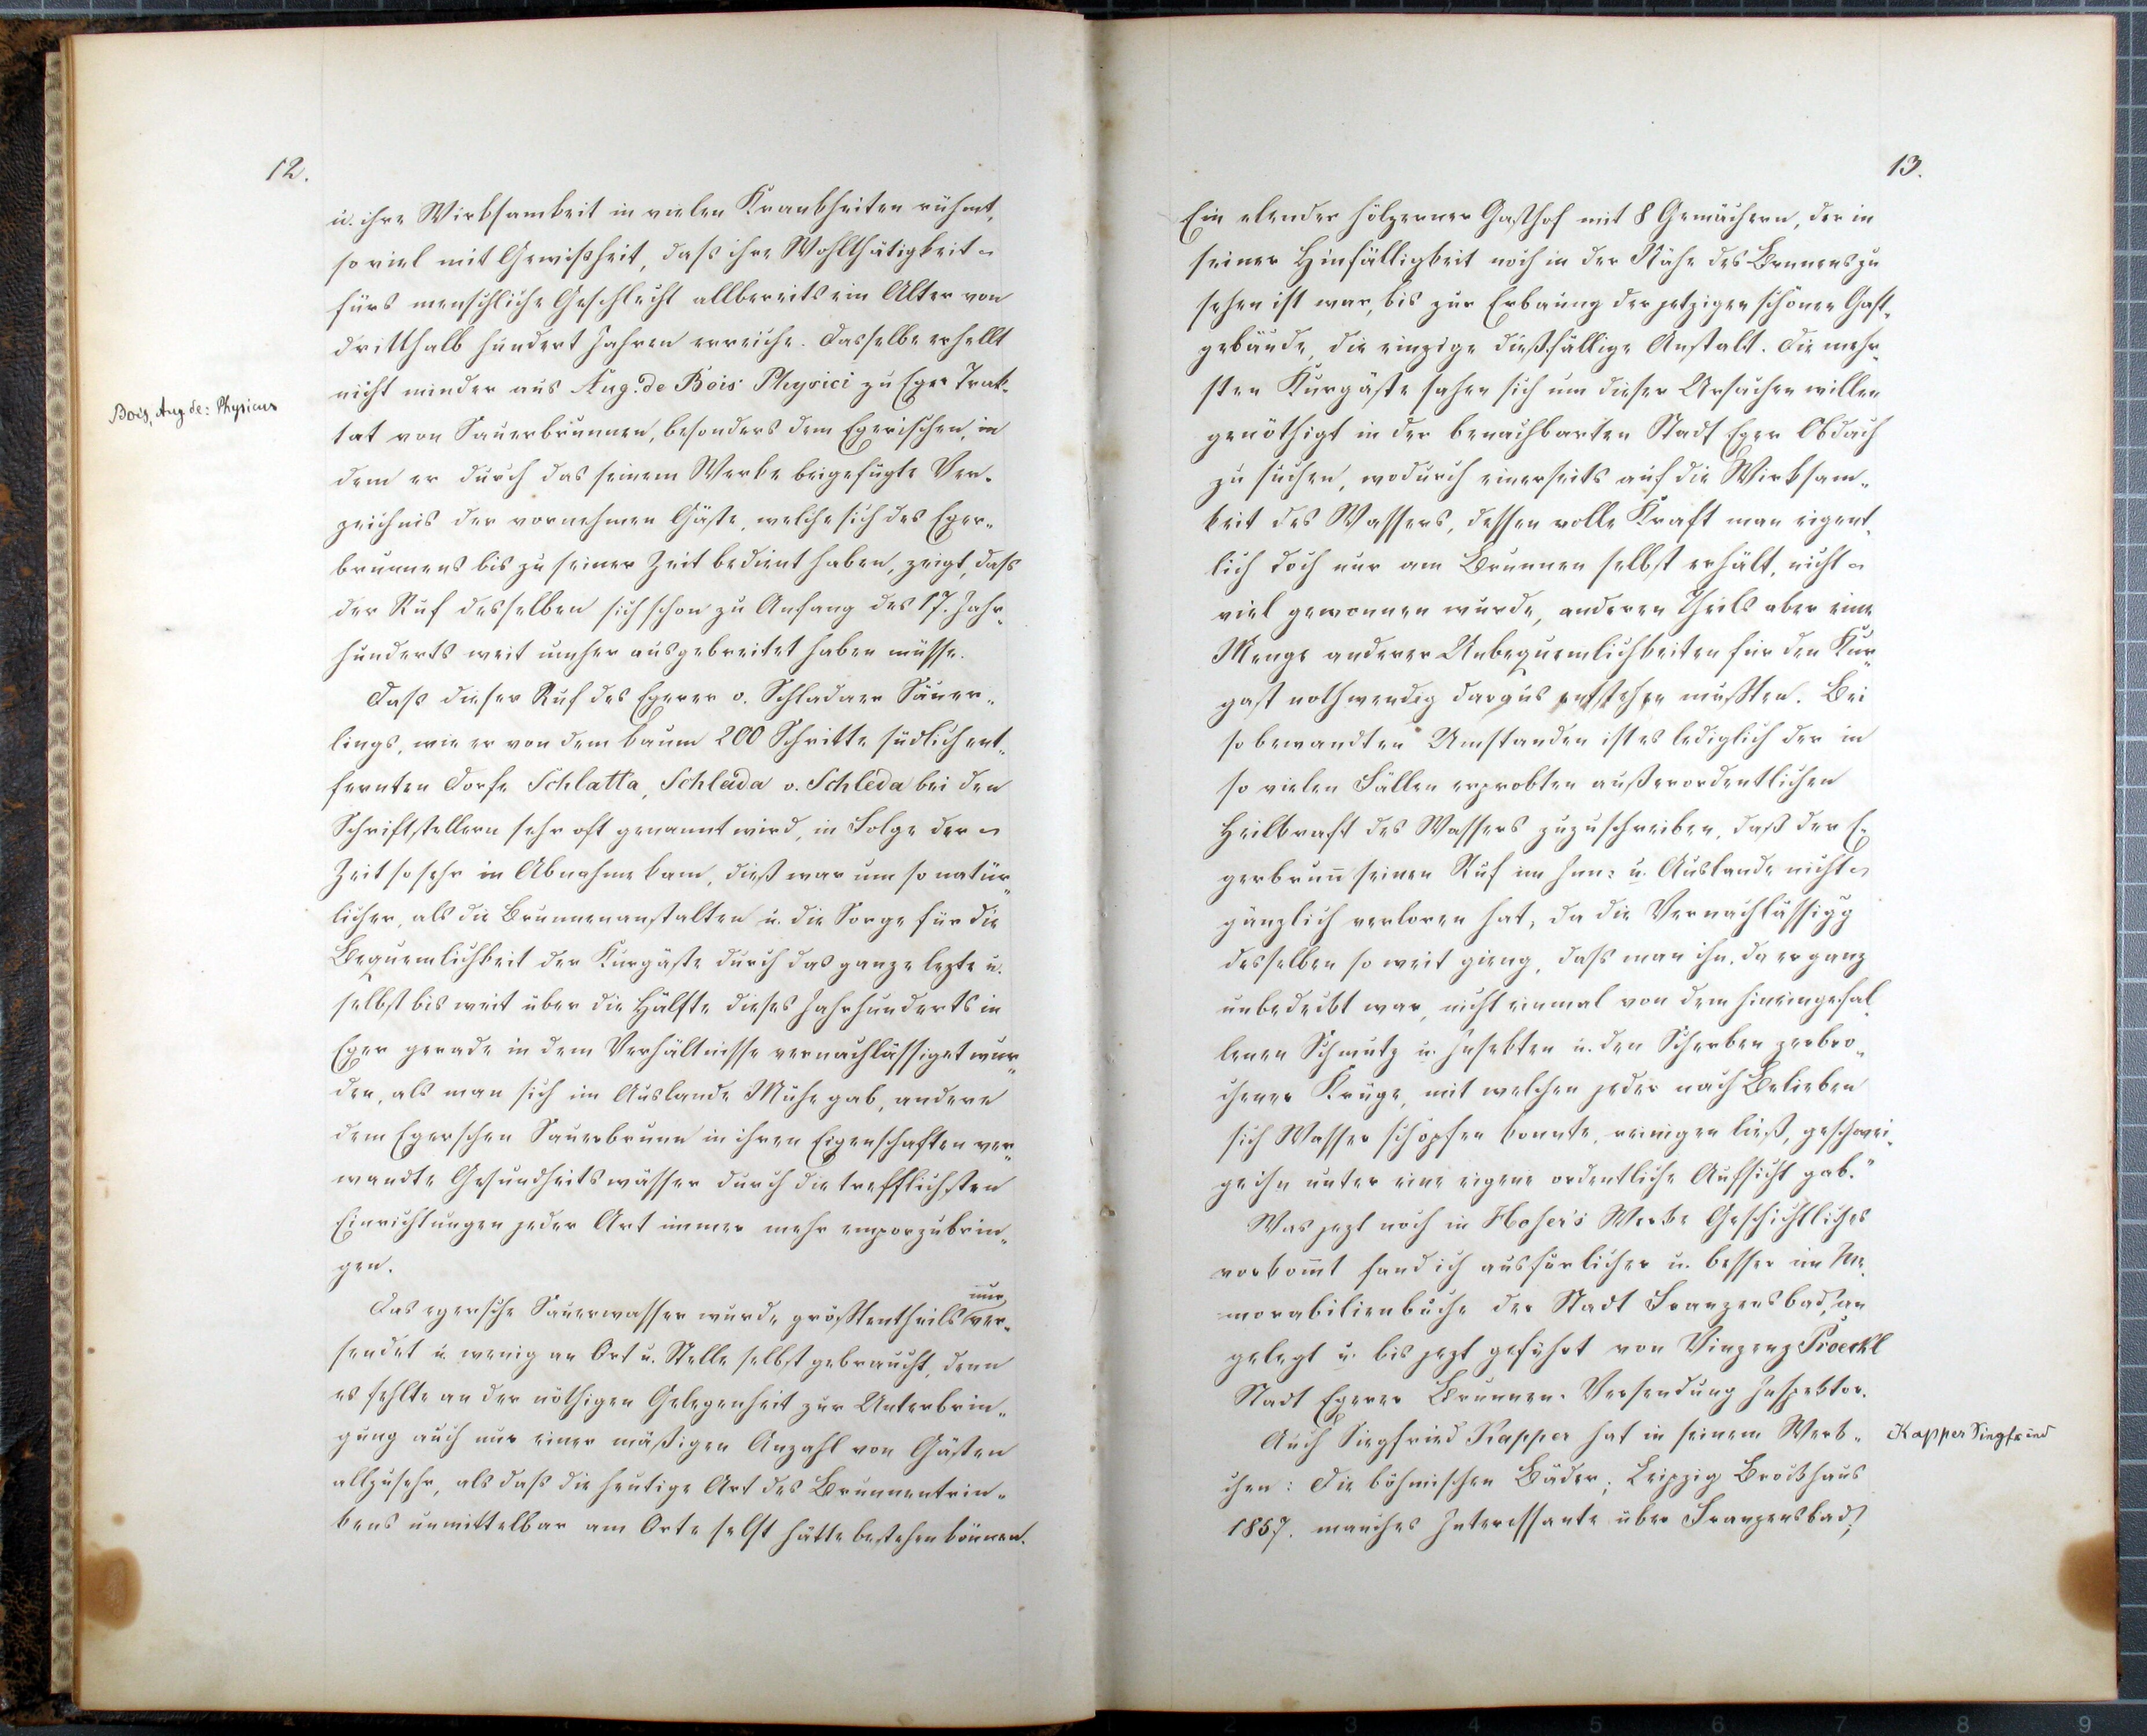 12.
u. ihre Wirksamkeit in vielen Krankheiten rühmt,
so viel mit Gewißheit, daß ihre Wohlthätigkeit
fürs menschliche Geschlecht allbereits ein Alter von
dritthalb hundert Jahren erreiche. Dasselbe erhellt
nicht minder aus Aug. de Bois Physici zu Eger Trak-
Bois, Aug. de: Physicus
tat von Sauerbrunnen, besonders dem Egerischen, in
dem er durch das seinem Werke beigefügte Ver-
zeichnis der vornehmen Gäste, welche sich des Eger-
brunnens bis zu seiner Zeit bedient haben, zeigt, daß
der Ruf desselben sich schon zu Anfang des 17. Jahr-
hunderts weit umher ausgebreitet haben müsse.
Daß dieser Ruf des Egerer o. Schladaer Säuer-
lings, wie er von dem kaum 200 Schritte südlich ent-
fernten Dorfe Schlatta, Schlada o. Schleda bei den
Schriftstellern sehr oft genannt wird, in Folge der
Zeit so sehr in Abnahme kam, dieß war um so natür-
licher, als die Brunnenanstalten u. die Sorge für die
Bequemlichkeit der Kurgäste durch das ganze lezte u.
selbst bis weit über die Hälfte dieses Jahrhunderts in
Eger gerade in dem Verhältnisse vernachlässiget wur-
den, als man sich im Auslande Mühe gab, andere
dem Egerschen Sauerbrunn in ihren Eigenschaften ver-
wandte Gesundheitswässer durch die trefflichsten
Einrichtungen jeder Art immer mehr emporzubrin-
gen.
Das egersche Sauerwasser wurde größtentheils nur ver-
sendet u. wenig an Ort u. Stelle selbst gebraucht, denn
es fehlte an der nöthigen Gelegenheit zur Unterbrin-
gung auch nur einer mäßigen Anzahl von Gästen
allzusehr, als daß die heutige Art des Brunnentrin-
kens unmittelbar am Orte selbst hätte bestehen können.
13.
Ein elender hölzerner Gasthof mit 8 Gemächern, der in
seiner Hinfälligkeit noch in der Nähe des Brunnens zu
sehen ist war, bis zur Erbauung der jetzigen schönen Gast-
gebäude, die einzige dießfällige Anstalt. Die mehr-
sten Kurgäste sahen sich um dieser Ursachen willen
genöthigt in der benachbarten Stadt Eger Obdach
zu suchen, wodurch einerseits auf die Wirksam-
keit des Wassers, dessen volle Kraft man eigent-
lich doch nur am Brunnen selbst erhält, nicht
viel gewonnen wurde, anderen Theils aber eine
Menge anderer Unbequemlichkeiten für den Kur-
gast nothwendig daraus entstehen mußten. Bei
so bewandten Umstanden ist es lediglich der in
so vielen Fällen erprobten außerordentlichen
Heilkraft des Wassers zuzuschreiben, daß der E-
gerbrunn̄ seinen Ruf im Inn- u. Auslande nicht
gänzlich verloren hat, da die Vernachlässigg
desselben so weit gieng, daß man ihn, da er ganz
unbedeckt war, nicht einmal von dem hineingefal-
lenen Schmutz u. Insekten u. den Scherben zerbro-
chener Krüge, mit welchen jeder nach Belieben
sich Wasser schöpfen konnte, reinigen ließ, geschwei-
ge ihn unter eine eigene ordentliche Aufsicht gab."
Was jezt noch in Hoser's Werke Geschichtliches
vorkom̄t fand ich ausfürlicher u. besser im Me-
morabilienbuche der Stadt Franzensbad, an
gelegt u. bis jezt geführt von Vinzenz Proeckl
Stadt Egerer Brunnen-Versendung Inspektor.
Auch Siegfried Kapper hat in seinem Werk-
Kapper Siegfried
chen: Die böhmischen Bäder; Leipzig Brockhaus
1857. manches Interessante über Franzensbad;